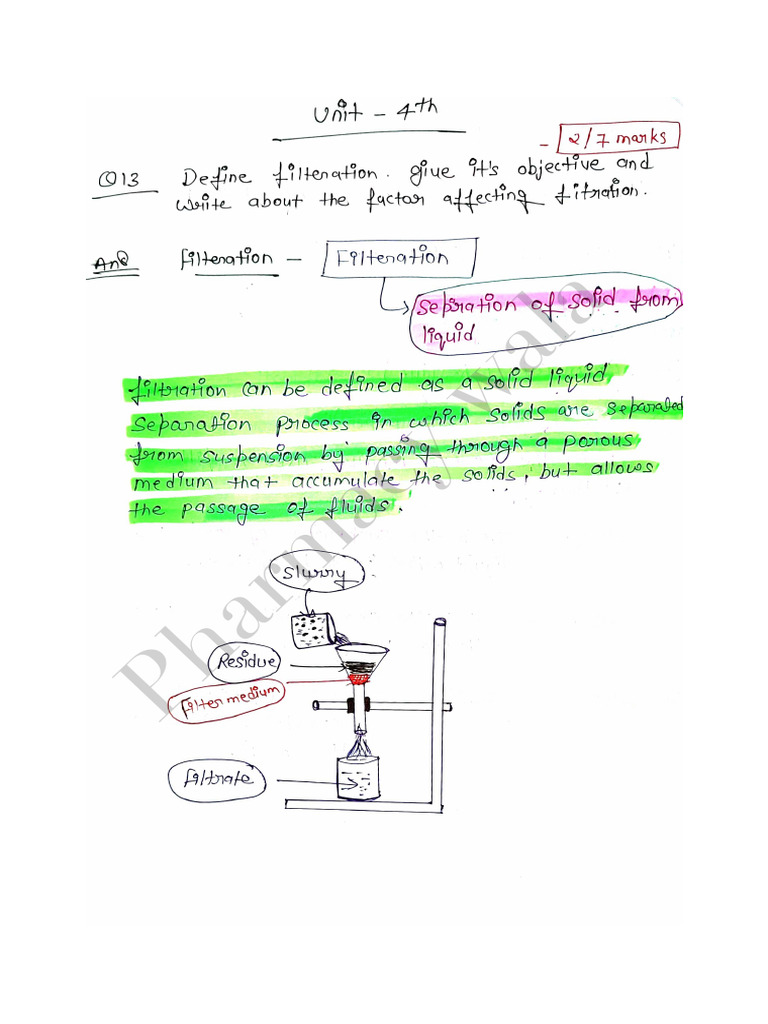 Unit - 4th
- 2/7 marks
Q13 Define filteration. give it's objective and
write about the factor affecting fitration.
Ans Filteration - Filteration
Sepiration of solid from
liquid
filtration can be defined as a solid liquid
separation process in which solids are separated
from suspension by passing through a porous
medium that accumulate the solids, but allows
the passage of fluids.
Slurry
Residue
Filter medium
filtrate
Pharmacy wala